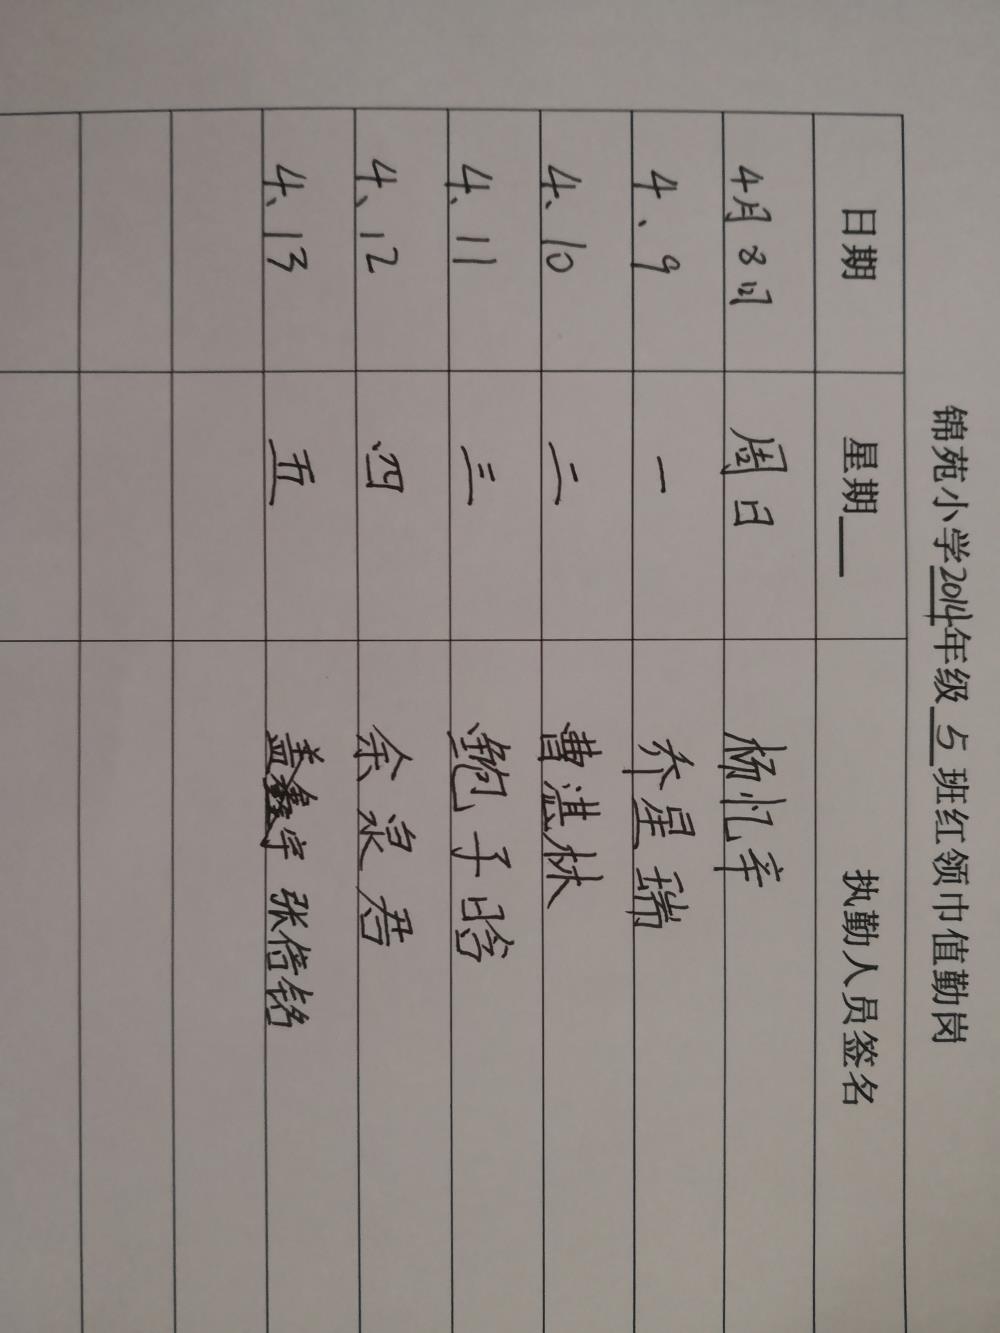 锦苑小学2014年级5班红领巾值勤岗
日期 星期__ 执勤人员签名
4月8日 周日 杨忆辛
4、9 一 乔星瑞
4、10 二 曹湛林
4、11 三 鲍子晗
4、12 四 余泉君
4、13 五 盖鑫宇 张倍铭